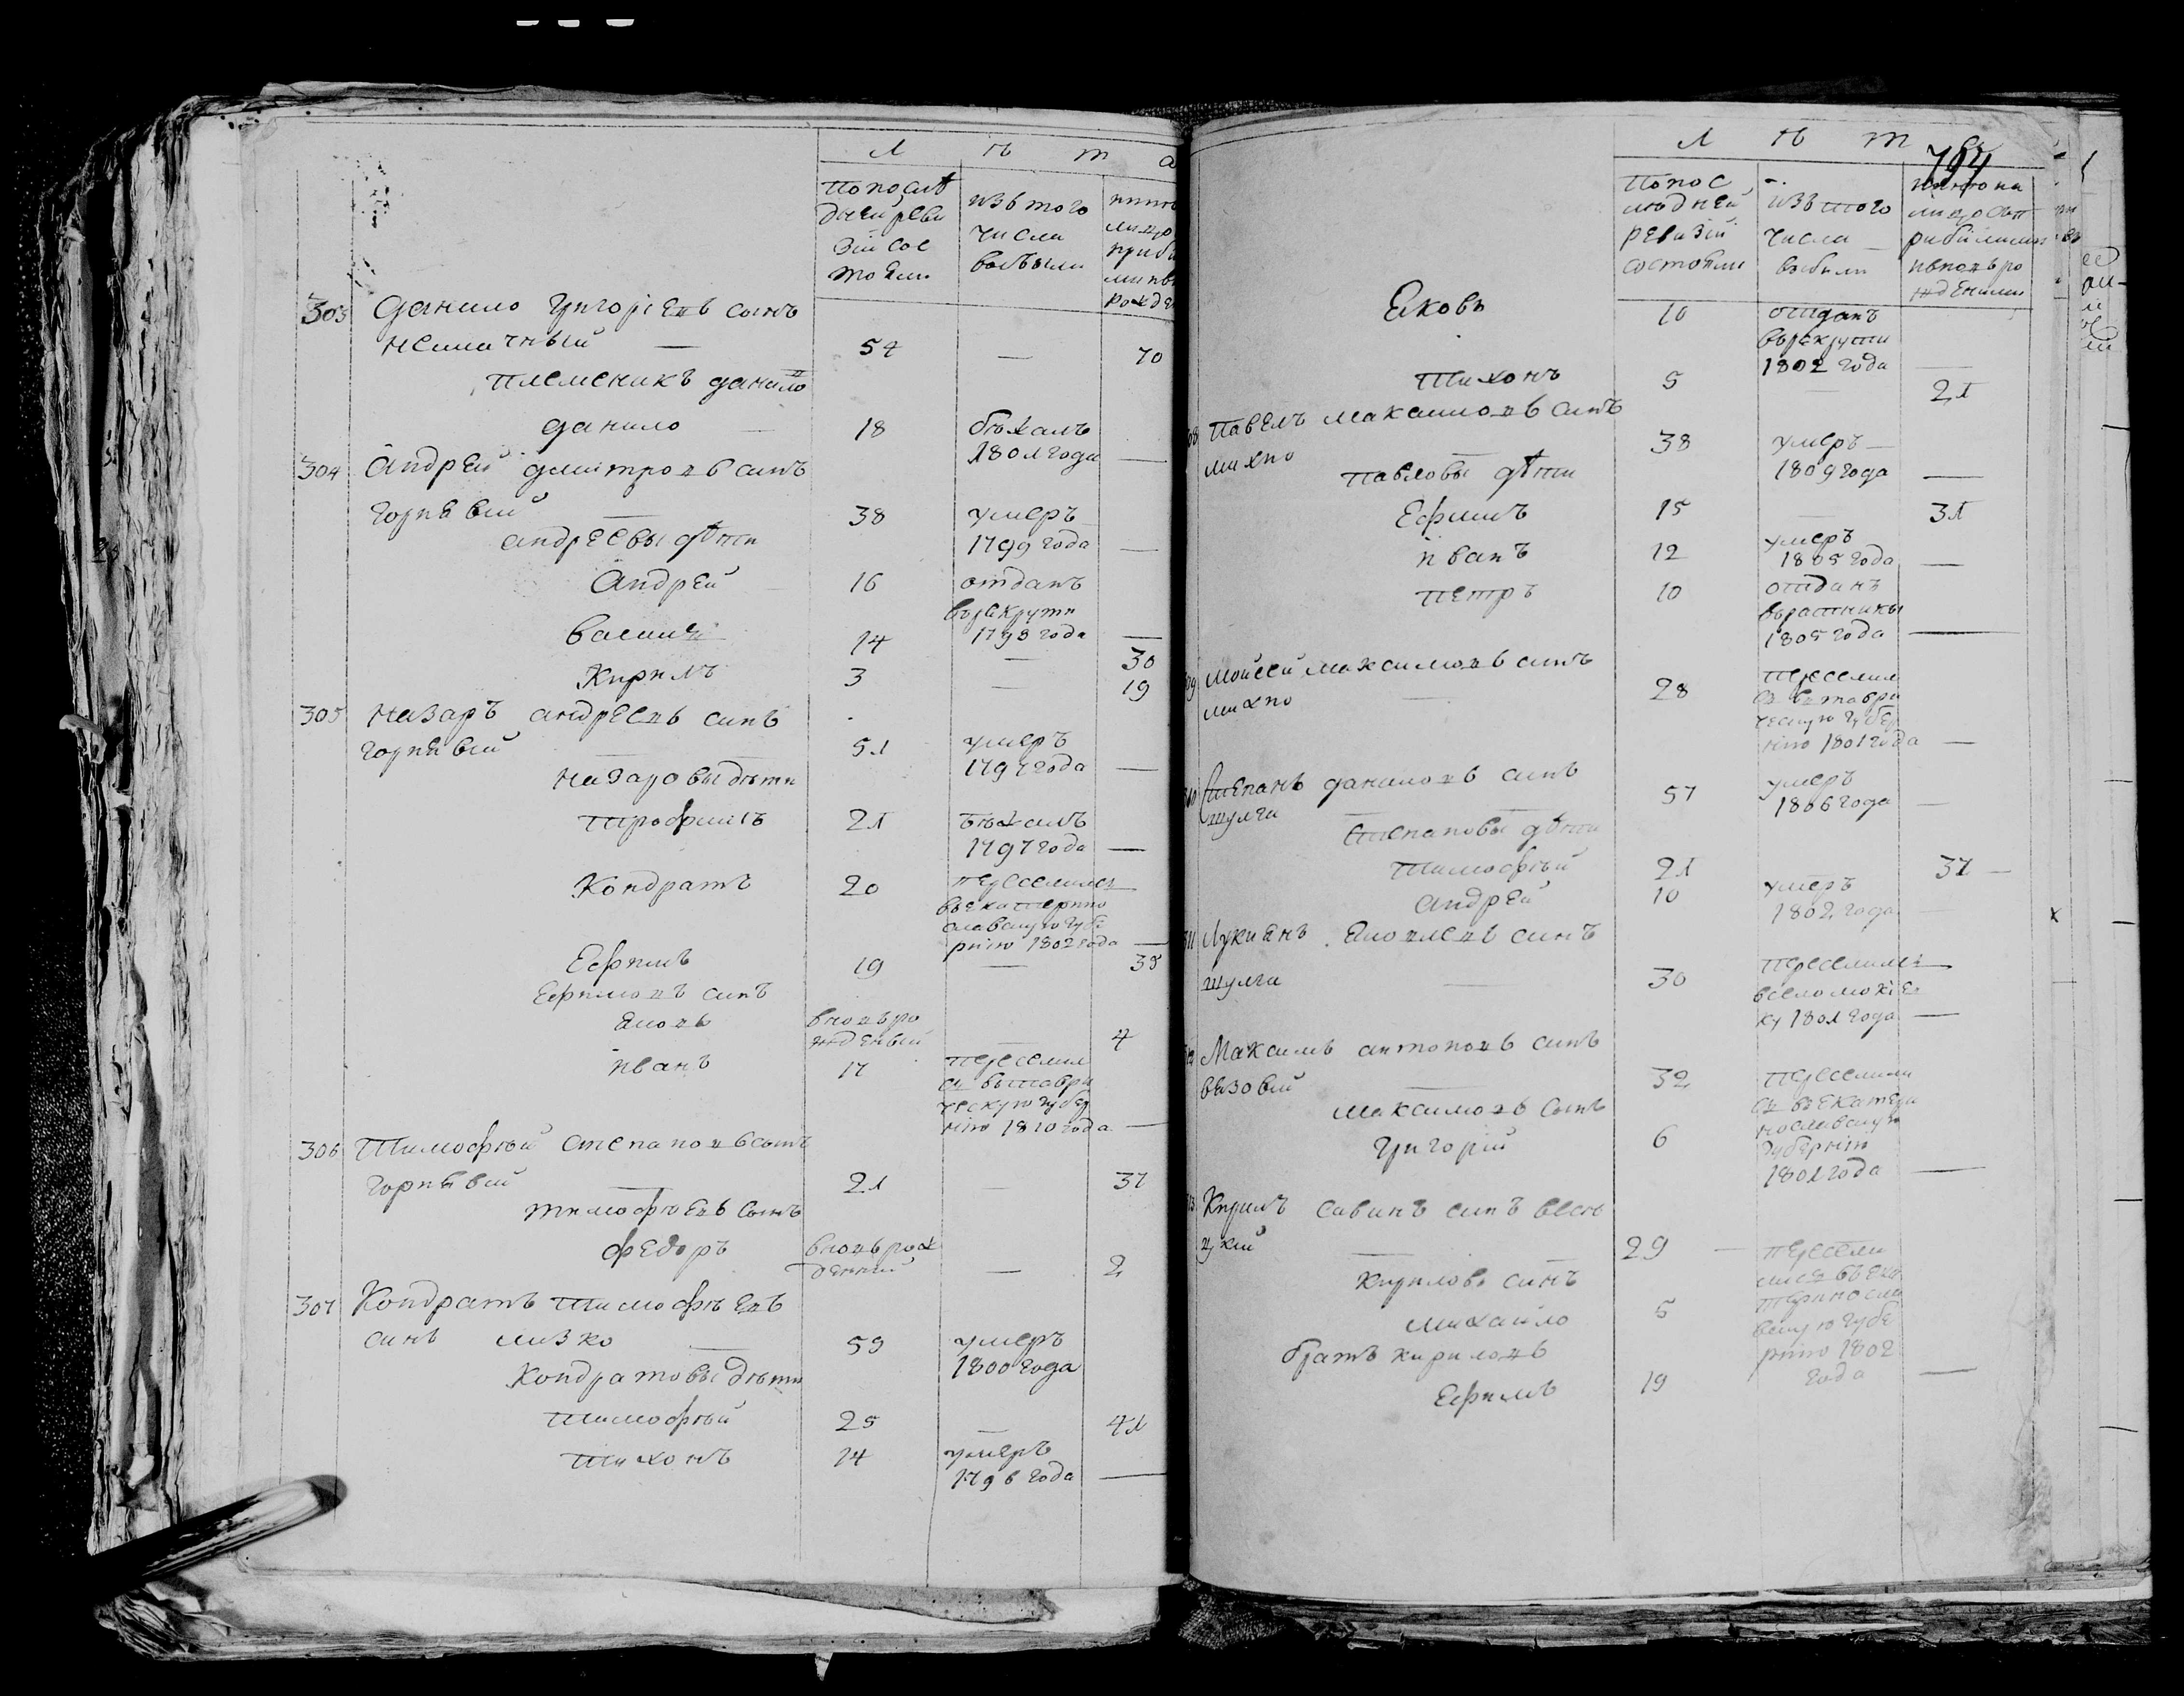 Л ѣ т а
По послѣ
дней реви
зіи сос
тояли
изъ того
числа
выбыли
303 Данило Григорiевъ сынъ
54 — 70
Племеникъ данилов
данило 18 бежалъ
1801 года —
304 Андрей дмитровъ синъ
Горявый — 38 умеръ
1799 года —
андреевы дѣти
Андрей 16 отданъ
врекруты
1798 года —
василей 14 — 30
Кирилъ 3 — 19
305 Назаръ андреевъ синъ
Горявый — 51 умеръ
1797 года —
Назаровы дѣти
Трофимъ 21 бежалъ
1797 года —
Кондратъ 20 переселился
векатерино
славскую губе
рнию 1802 года —
Ефимъ 19 — 35
Ефимовъ синъ
Яковъ вновь ро
жденый — 4
иванъ 17 переселил
ся втаври
ческую губер
нию 1810 года —
306 Тимофѣй степановъ сынъ
Горявый — 21 — 37
тимофѣевъ сынъ
федоръ вновь рож
денный — 2
307 Кондратъ Тимофѣевъ
синъ мизко — 59 умеръ
1800 года
Кондратовы дѣти
Тимофѣй 25 — 41
Тихонъ 14 умеръ
1796 года —
794
Л ѣ т
По пос
лѣдней
ревизіи
состояли
изъ того
числа
выбыли
Яковъ 10 отданъ
врекруты
1802 года —
Тихонъ 5 — 21
Павелъ максимовъ синъ
михно — 38 умеръ
1809 года —
павловы дѣти
Ефимъ 15 — 31
иванъ 12 умеръ
1805 года —
петръ 10 отданъ
вратники
1805 года —
Мойсей максимовъ синъ
михно — 28 переселил
ся втаври
ческую губер
нию 1801 года —
Степанъ даниловъ синъ
шулга — 57 умеръ
1806 года —
Степановы дѣти
Тимофѣй 21 37 —
андрей 10 умеръ
1802 года —
311 Лукиянъ синъ
шулга — 30 переселился
ку 1801 года —
Максимъ антоновъ синъ
вязовый — 32 переселили
ся векатери
нославскую
губернию
1801 года —
максимовъ сынъ
Григорій 6
Кирилъ савинъ синъ весе
цкий — 29 — пересели
лися века
теринослав
скую губе
рнию 1802
года —
кириловъ синъ
михайло 5
братъ кириловъ
Ефимъ 19